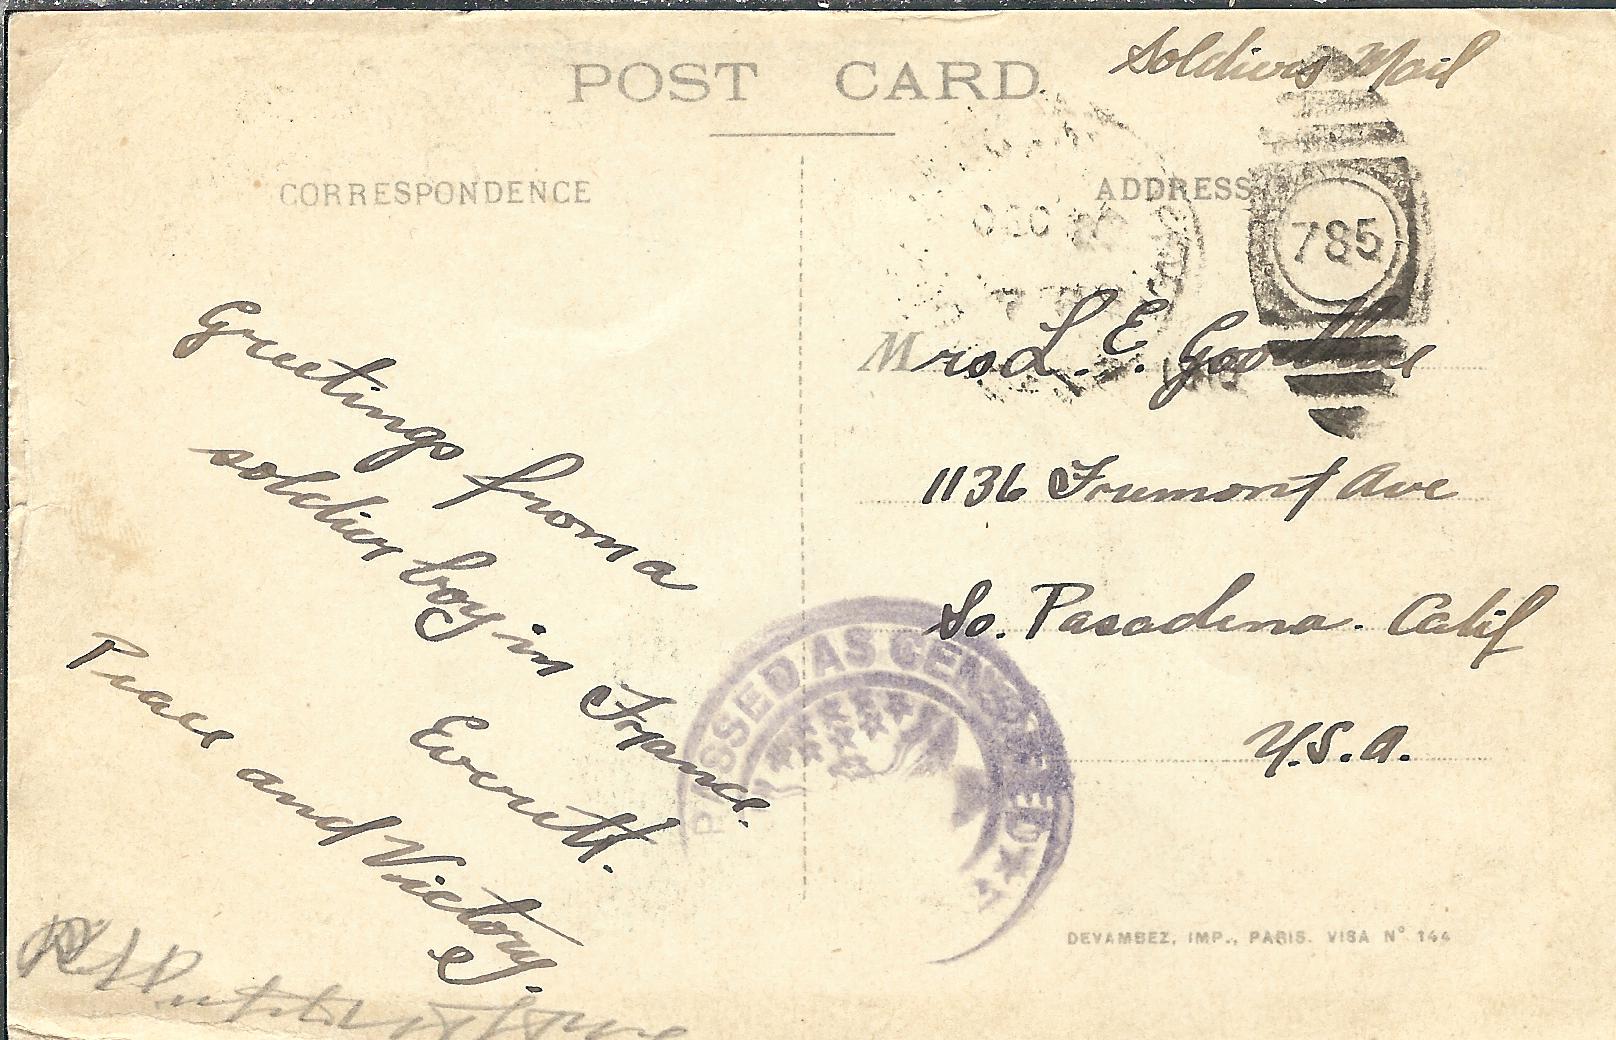 Soldiers Mail
POST CARD
CORRESPONDENCE
ADDRESS
DEC
785
Mrs L. E.
1136 Fremont Ave
So. Pasadena. Calif
U.S.A.
Greetings from a
soldier boy in France.
Everett.
Peace and Victory.
PASSED AS CENSORED
DEVAMBEZ, IMP., PARIS. VISA N° 144